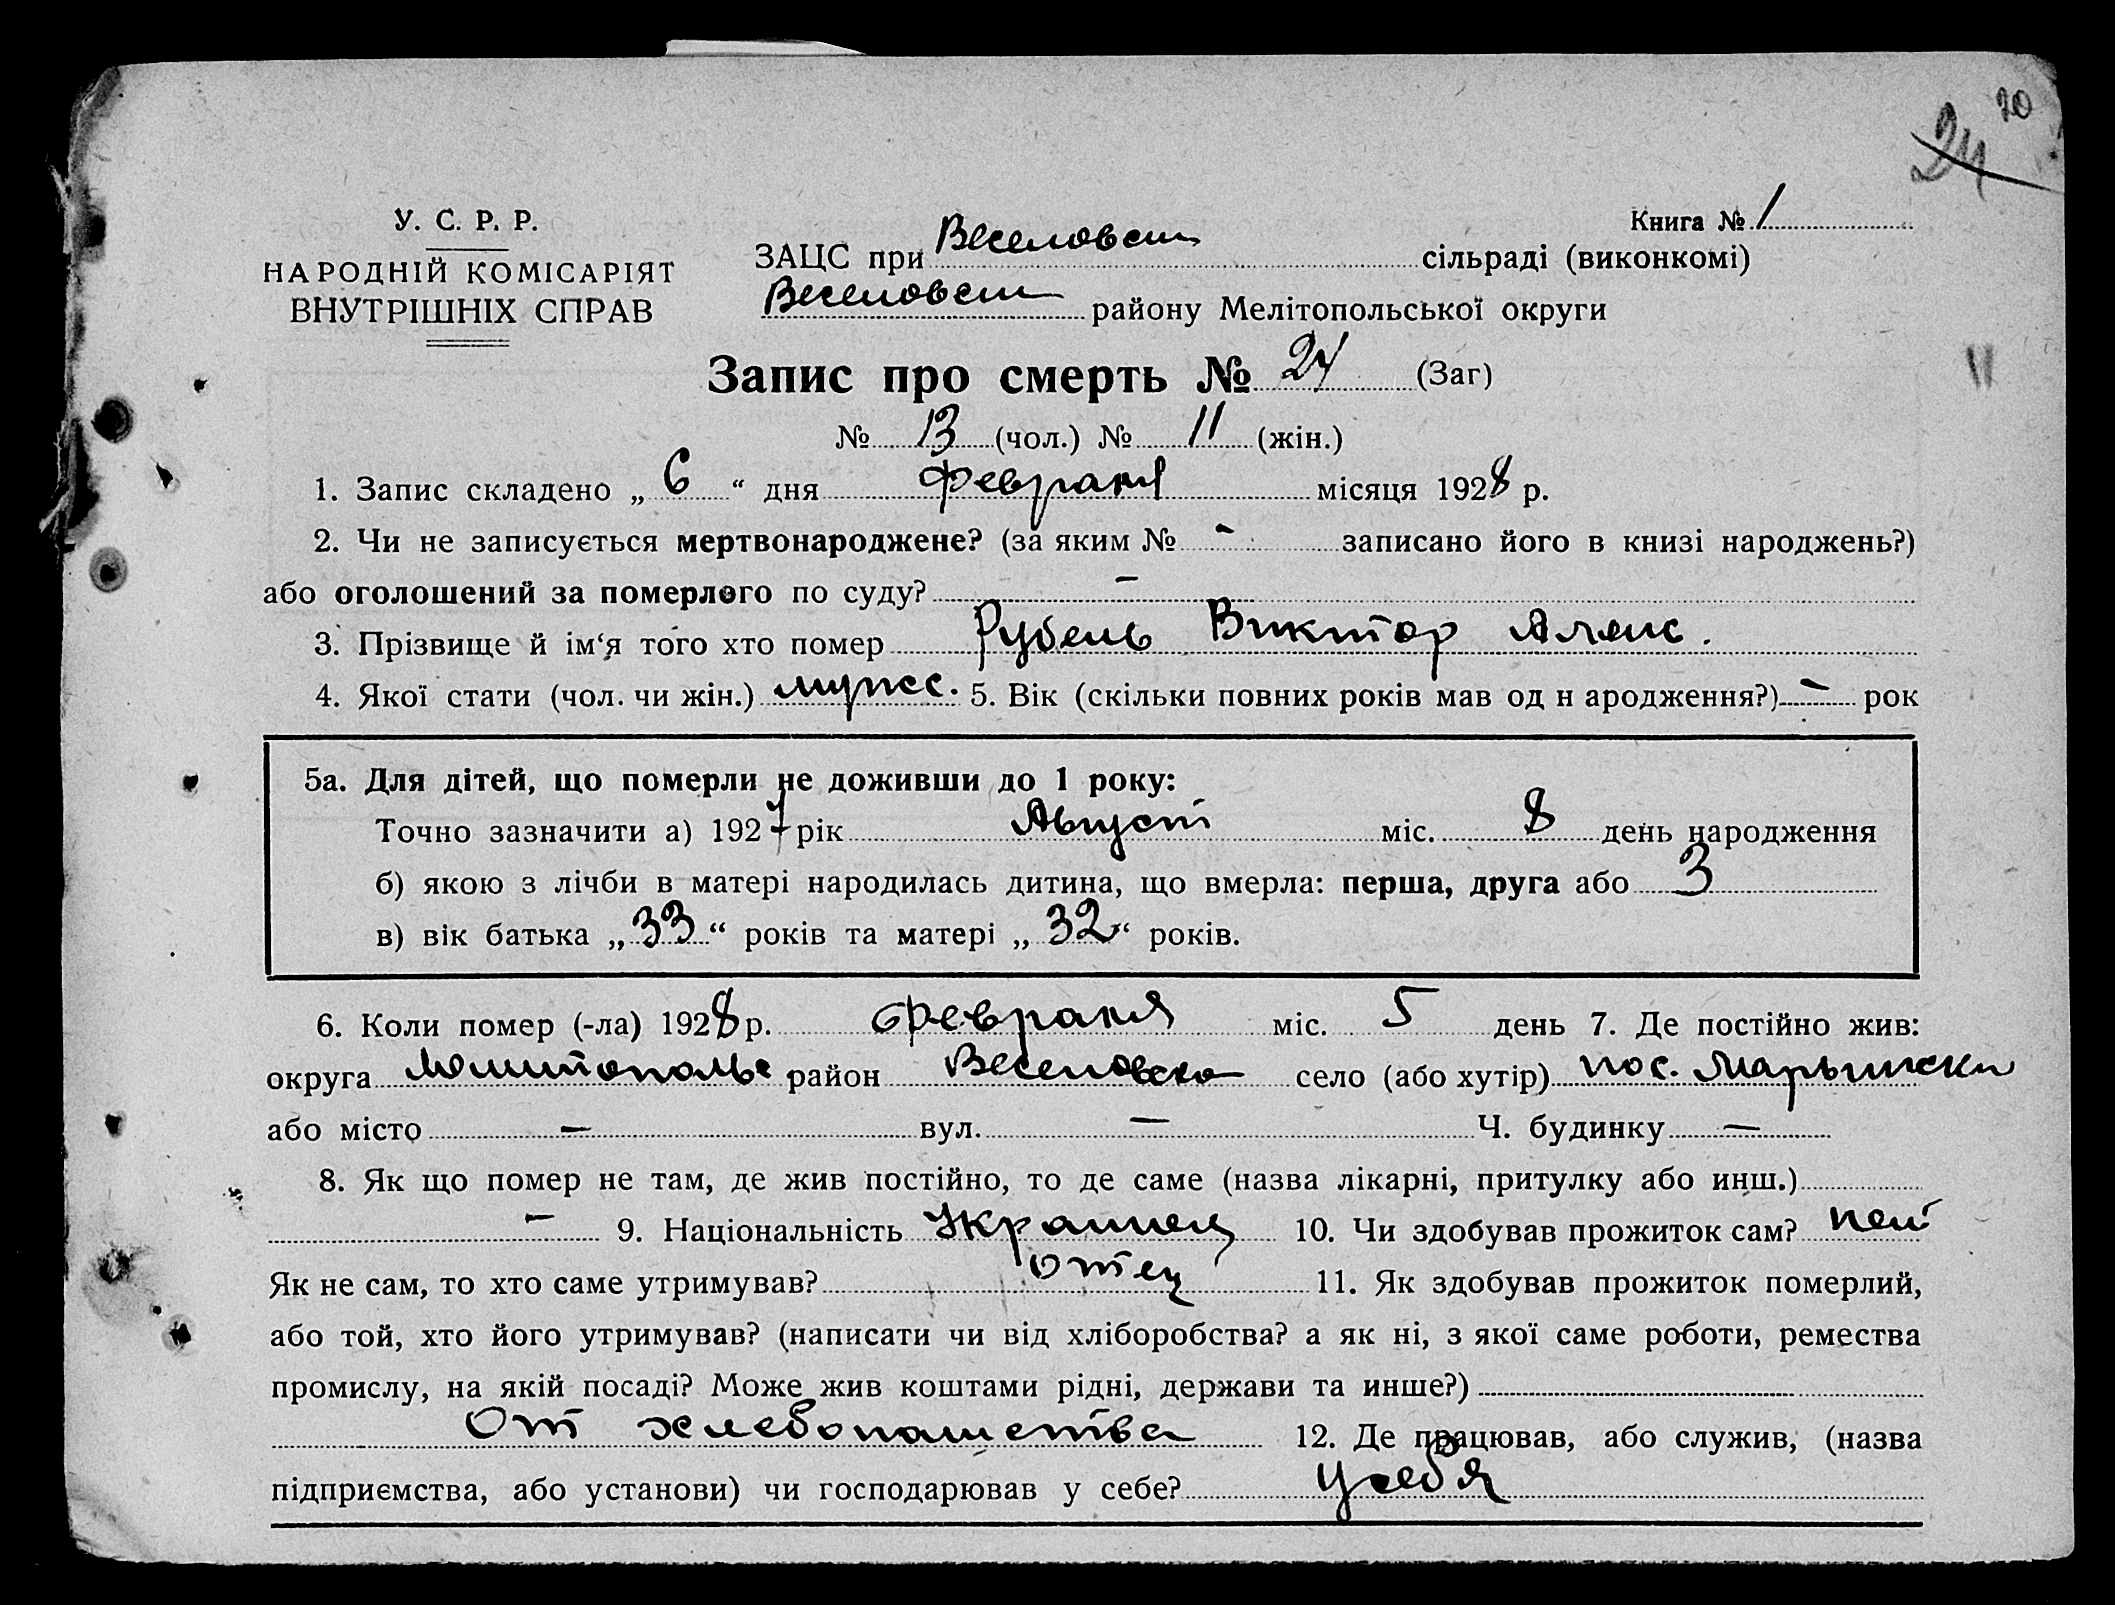 20
24
У. С. Р. Р.
НАРОДНІЙ КОМІСАРІЯТ
ВНУТРІШНІХ СПРАВ
Книга № 1
ЗАЦС при Веселовск сільраді (виконкомі)
Веселовск району Мелітопольської округи
Запис про смерть № 24 (Заг)
№ 13 (чол.) № 11 (жін.)
1. Запис складено „ 6 “ дня февраля місяця 1928 р.
2. Чи не записується мертвонароджене? (за яким № - записано його в книзі народжень?)
або оголошений за померлого по суду? —
3. Прізвище й ім‘я того хто помер Рубель Виктор Алекс.
4. Якої стати (чол. чи жін.) мужск. 5. Вік (скільки повних років мав од н ародження?) — рок
5а. Для дітей, що померли не доживши до 1 року:
Точно зазначити а) 1927 рік Август міс. 8 день народження
б) якою з лічби в матері народилась дитина, що вмерла: перша, друга або 3
в) вік батька „ 33 “ років та матері „ 32 “ років.
6. Коли помер (-ла) 1928 р. февраля міс. 5 день 7. Де постійно жив:
округа район Веселовско село (або хутір) пос.
або місто — вул. — Ч. будинку —
8. Як що помер не там, де жив постійно, то де саме (назва лікарні, притулку або инш.)
— 9. Національність Украинец 10. Чи здобував прожиток сам? нет
Як не сам, то хто саме утримував? отец 11. Як здобував прожиток померлий,
або той, хто його утримував? (написати чи від хліборобства? а як ні, з якої саме роботи, ремества
промислу, на якій посаді? Може жив коштами рідні, держави та инше?)
От хлебопашества 12. Де працював, або служив, (назва
підприємства, або установи) чи господарював у себе? у себя